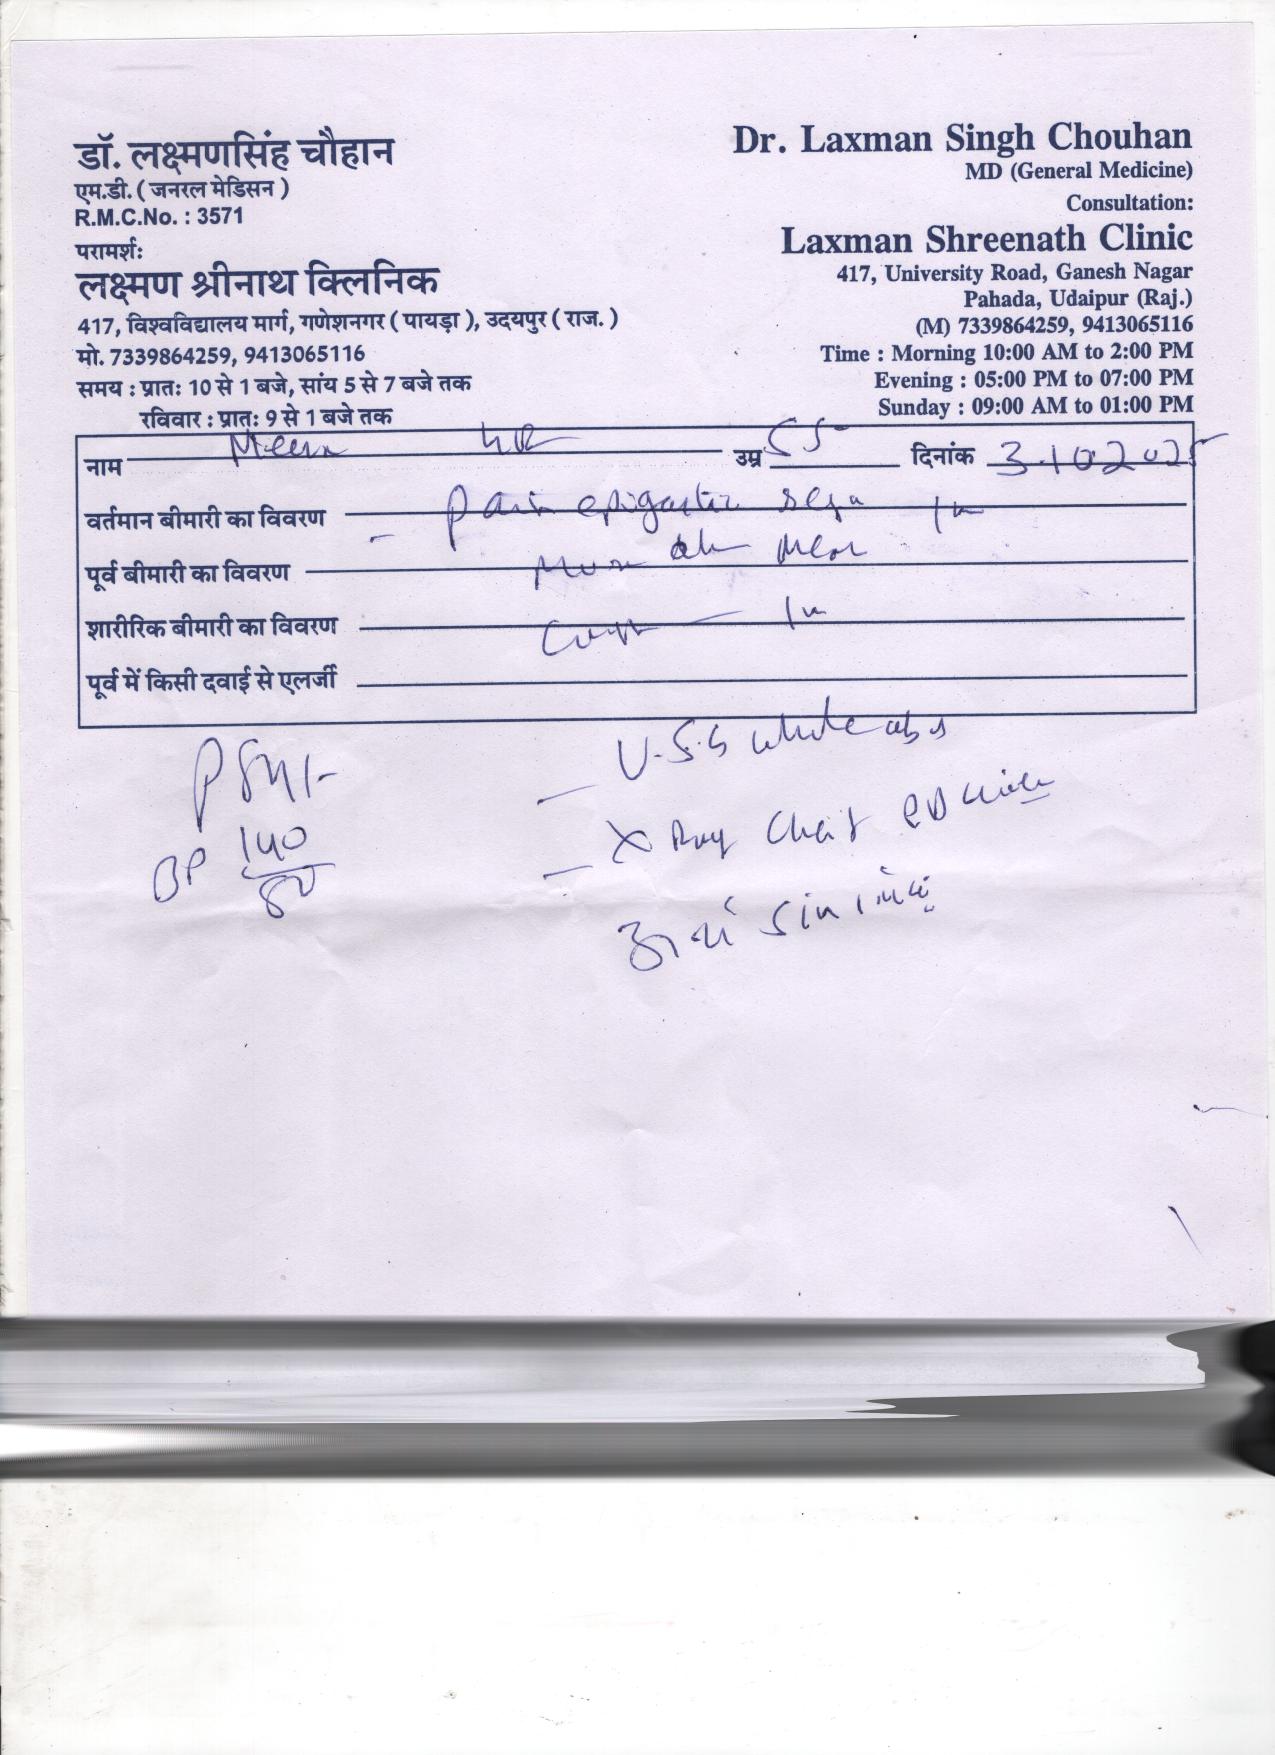 डॉ. लक्ष्मणसिंह चौहान
एम.डी. ( जनरल मेडिसन )
R.M.C.No. : 3571
परामर्शः
लक्ष्मण श्रीनाथ क्लिनिक
417, विश्वविद्यालय मार्ग, गणेशनगर ( पायड़ा ), उदयपुर ( राज. )
मो. 7339864259, 9413065116
समय : प्रातः 10 से 1 बजे, सांय 5 से 7 बजे तक
रविवार : प्रातः 9 से 1 बजे तक
Dr. Laxman Singh Chouhan
MD (General Medicine)
Consultation:
Laxman Shreenath Clinic
417, University Road, Ganesh Nagar
Pahada, Udaipur (Raj.)
(M) 7339864259, 9413065116
Time : Morning 10:00 AM to 2:00 PM
Evening : 05:00 PM to 07:00 PM
Sunday : 09:00 AM to 01:00 PM
नाम Meena उम्र 55 दिनांक 3.10.2025
वर्तमान बीमारी का विवरण - Pain epigastric
पूर्व बीमारी का विवरण
शारीरिक बीमारी का विवरण
पूर्व में किसी दवाई से एलर्जी
P 84/-
BP 140/80
- U.S.G whole abd
- X Ray Chest